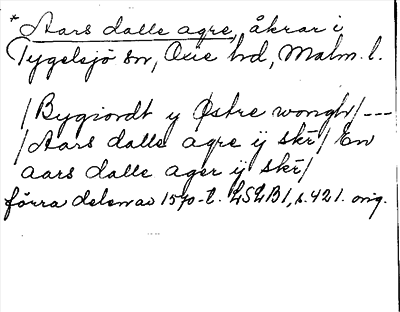 * Aars dalle agre, åkrar i
Tygelsjö sn, Oxie hd, Malm. l.
/Bygiordt y Østre wongh/ ---
/Aars dalle agre ÿ skr̄/ En
aars dalle ager ÿ skr̄/
förra delen av 1570-t. LSLB1, s. 421. orig.